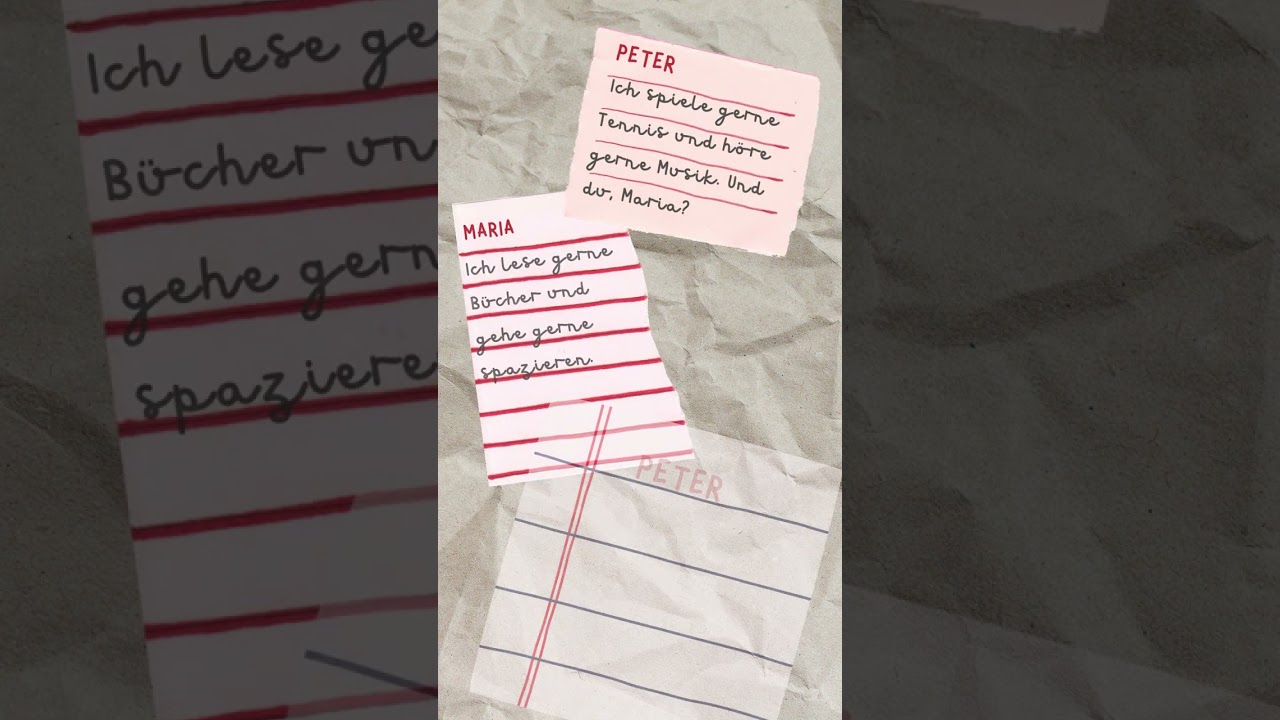 PETER
Ich spiele gerne
Tennis und höre
gerne Musik. Und
du, Maria?
MARIA
Ich lese gerne
Bücher und
gehe gerne
spazieren.
PETER
Ich lese ge
Bücher un
gehe gern
spaziere